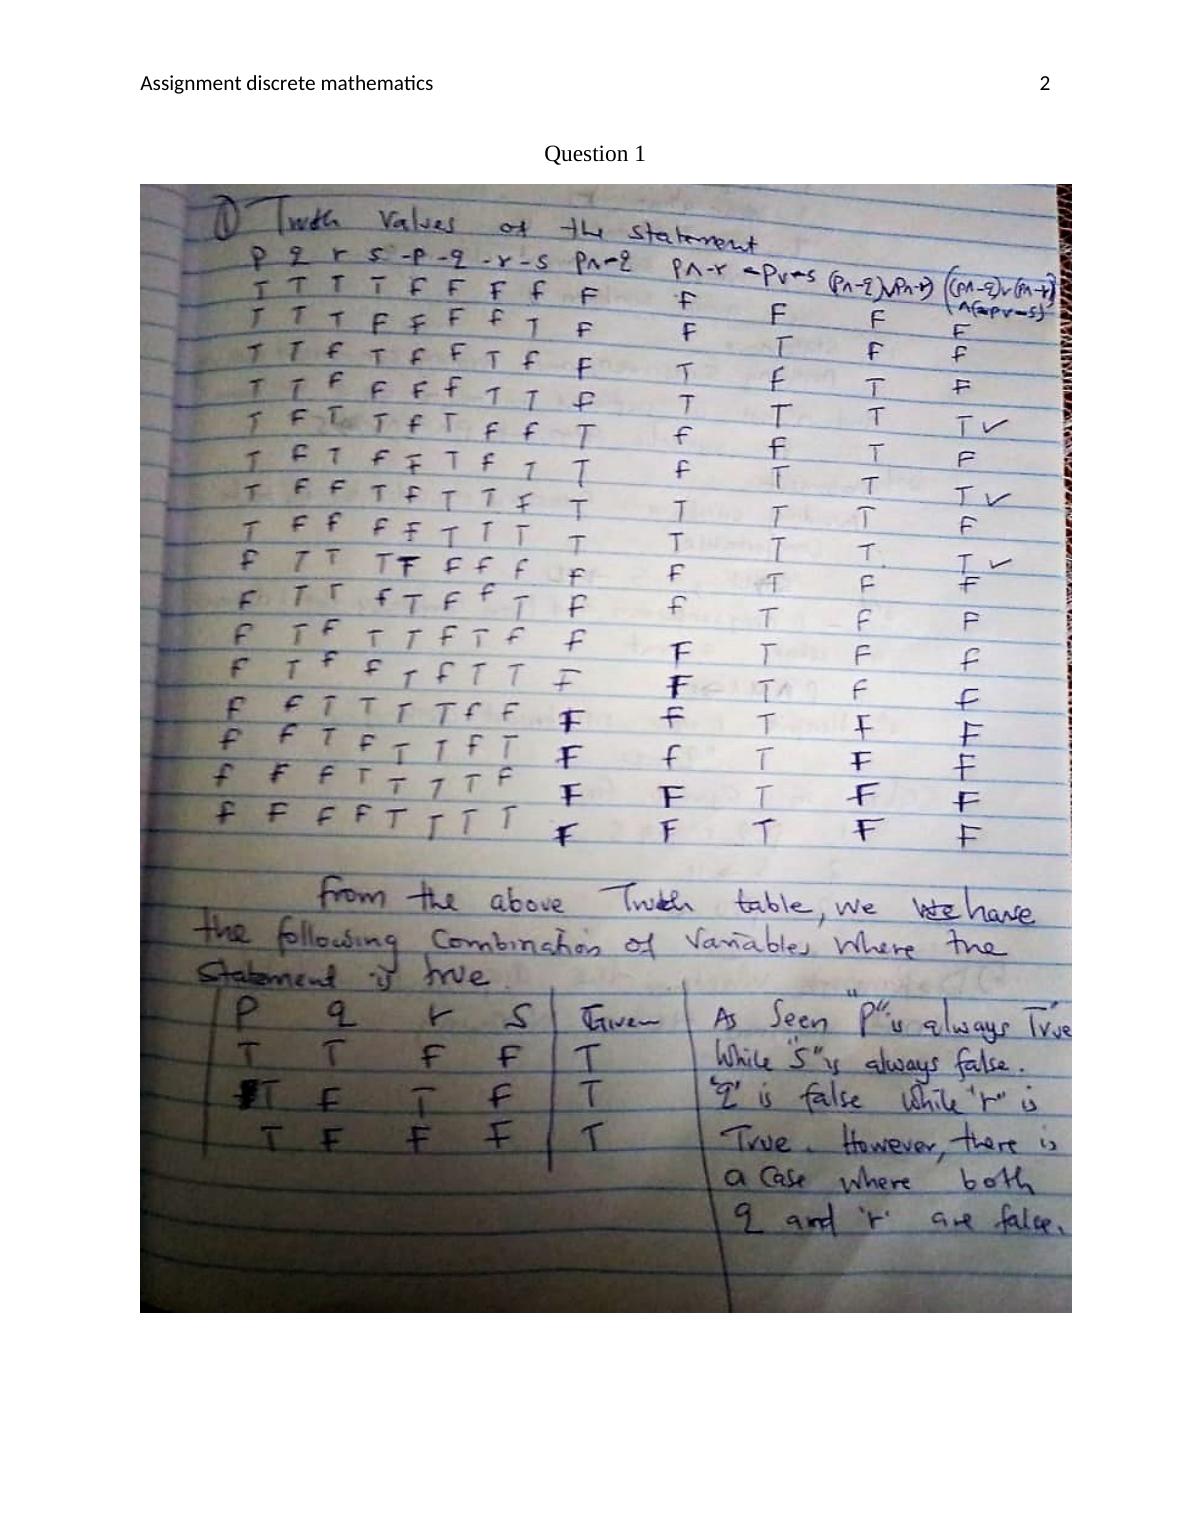 Assignment discrete mathematics 2
Question 1
① Truth Values of the statement
P q r s -P -q -r -s P∧-q P∧-r -Pv-s (P∧-q)v(P∧-r) ((P∧-q)v(P∧-r))
∧(-pv-s)
T T T T F F F f F F F F F
T T T F F F f T F F T F F
T T f T F F T f F T f T F
T T F F F f T T F T T T T ✓
T F T T f T F f T f f T F
T F T F F T f T T f T T T ✓
T F F T f T T F T T T T F
T F f F F T T T T T T T. T ✓
f T T T F F f f F F T F F
F T T f T F f T F f T F F
F T F T T F T f F F T F f
F T f f T f T T F F T F f
F F T T T T f F F f T F F
f F T F T T f T F f T F F
f F F T T T T F F F T F F
f F F F T T T T F F T F F
from the above Truth table, we We have
the following Combination of Variables where the
Statement is true.
P q r S Given
T T F F T
T F T F T
T F F F T
As Seen "P" is always True
While "S" is always false.
'q' is false while "r" is
True. However, there is
a Case where both
q and 'r' are false.